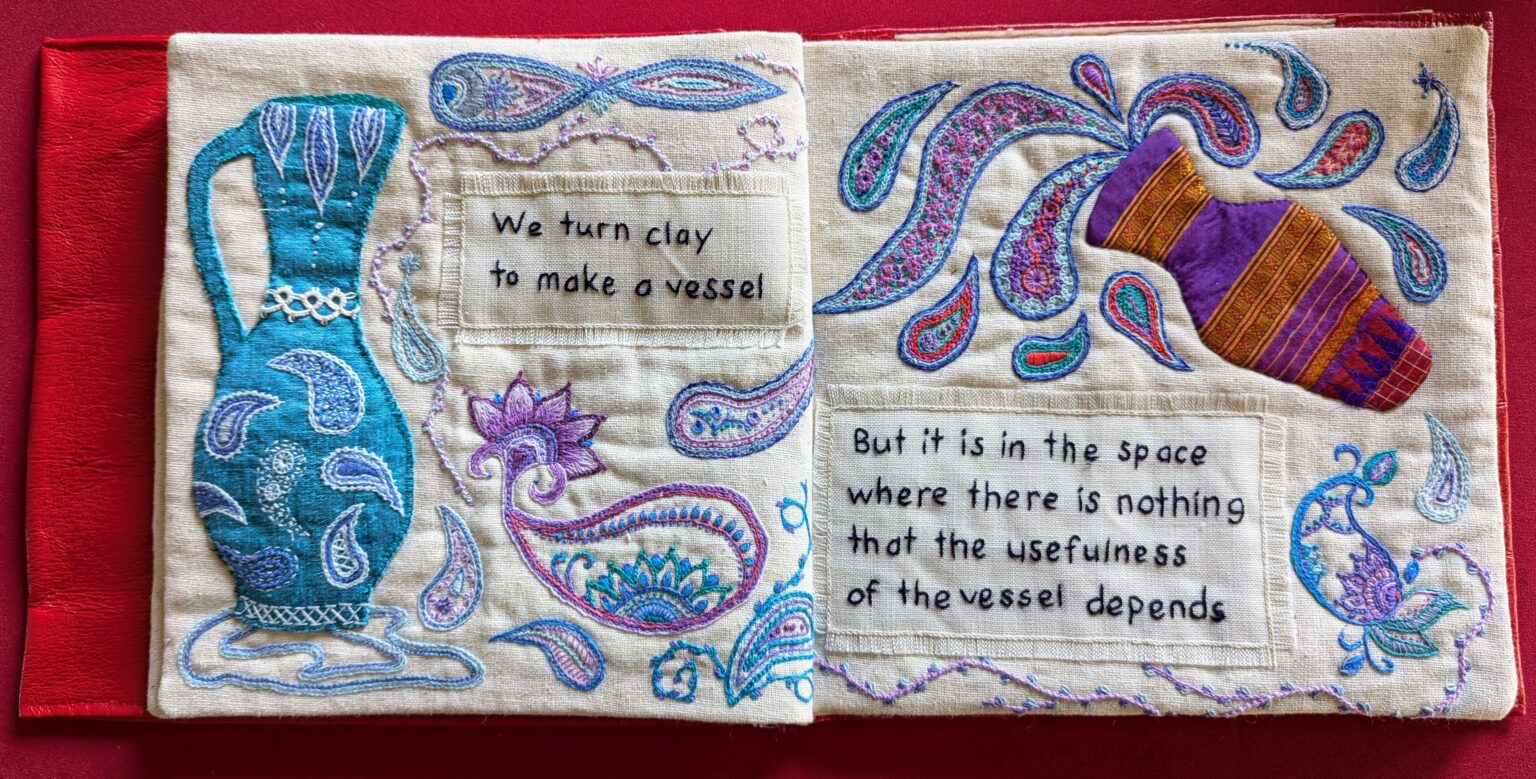 We turn clay
to make a vessel
But it is in the space
where there is nothing
that the usefulness
of the vessel depends